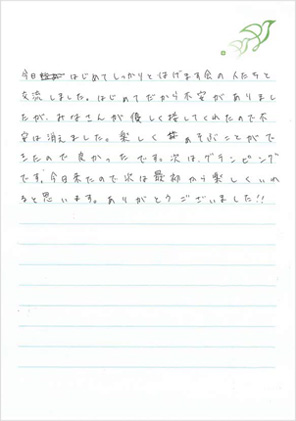 今日はじめてしっかりとはげます会の人たちと
交流しました。はじめてだから不安がありまし
たが、みなさんが優しく接してくれたので不
安は消えました。楽しくあそぶことがで
きたので良かったです。次は、グランピング
です。今日来たので次は最初から楽しくいれ
ると思います。ありがとうございました!!